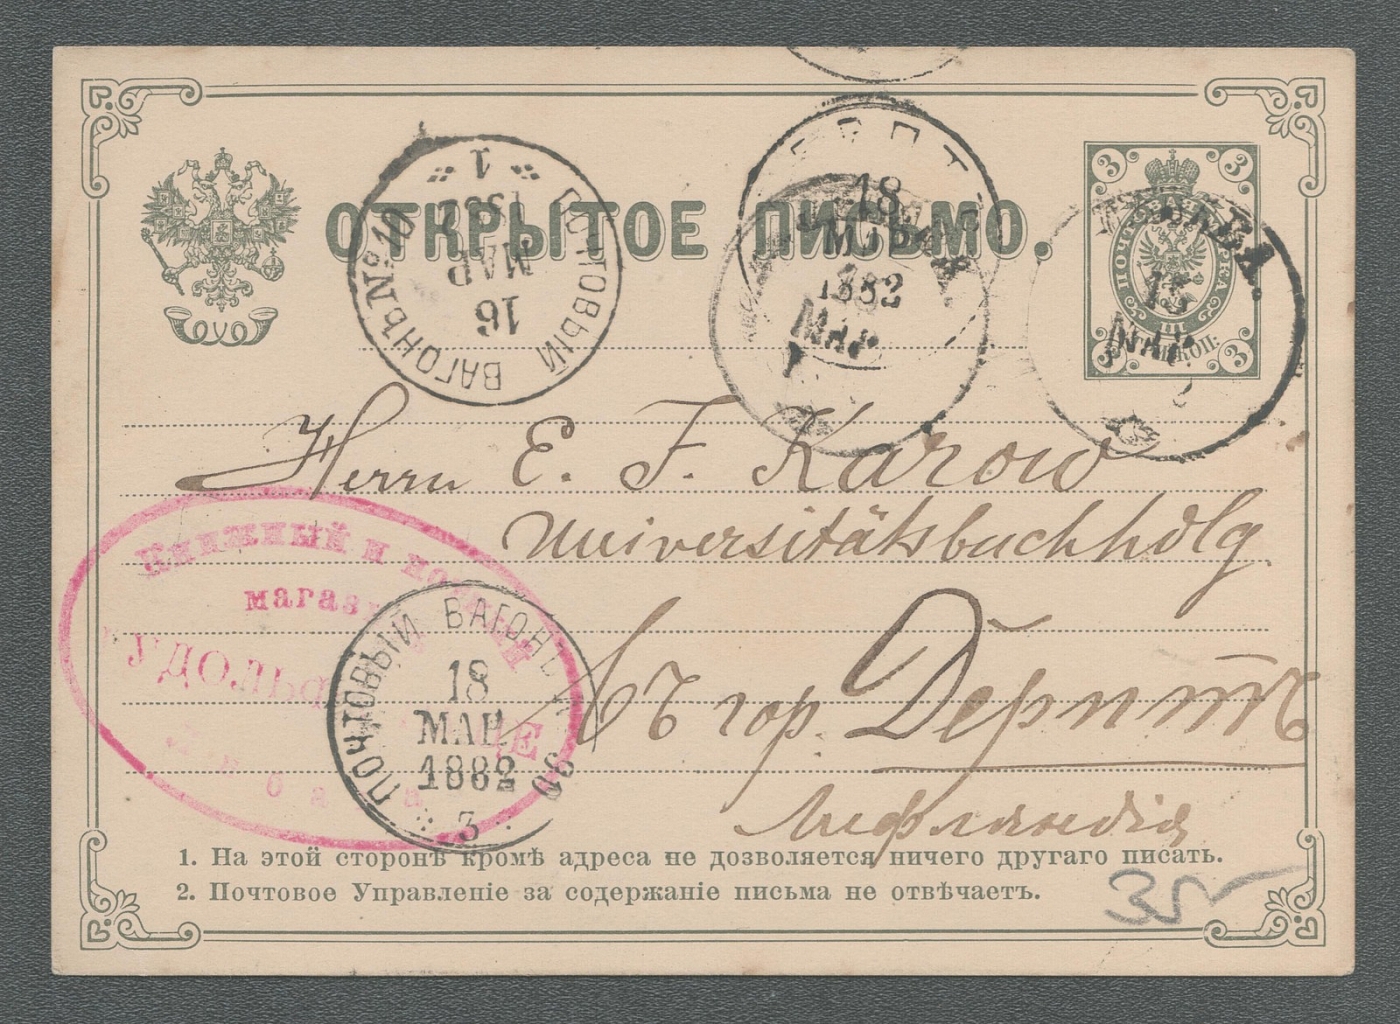 ОТКРЫТОЕ ПИСЬМО.
3 3
ПОЧТОВАЯ МАРКА
ТРИ КОП:
3 3
ПОЧТОВЫЙ ВАГОНЪ № 10
16
МАР
1882
1
18
МАР
1882
МАР
15
МАР
Herrn E. F. Karow
Universitätsbuchhdlg
Въ гор. Дерптъ
Лифляндія
Книжный и нотный
магази
ПОЧТОВЫЙ ВАГОНЪ
18
МАР.
1882
3
1. На этой сторонѣ кромѣ адреса не дозволяется ничего другаго писать.
2. Почтовое Управленіе за содержаніе письма не отвѣчаетъ.